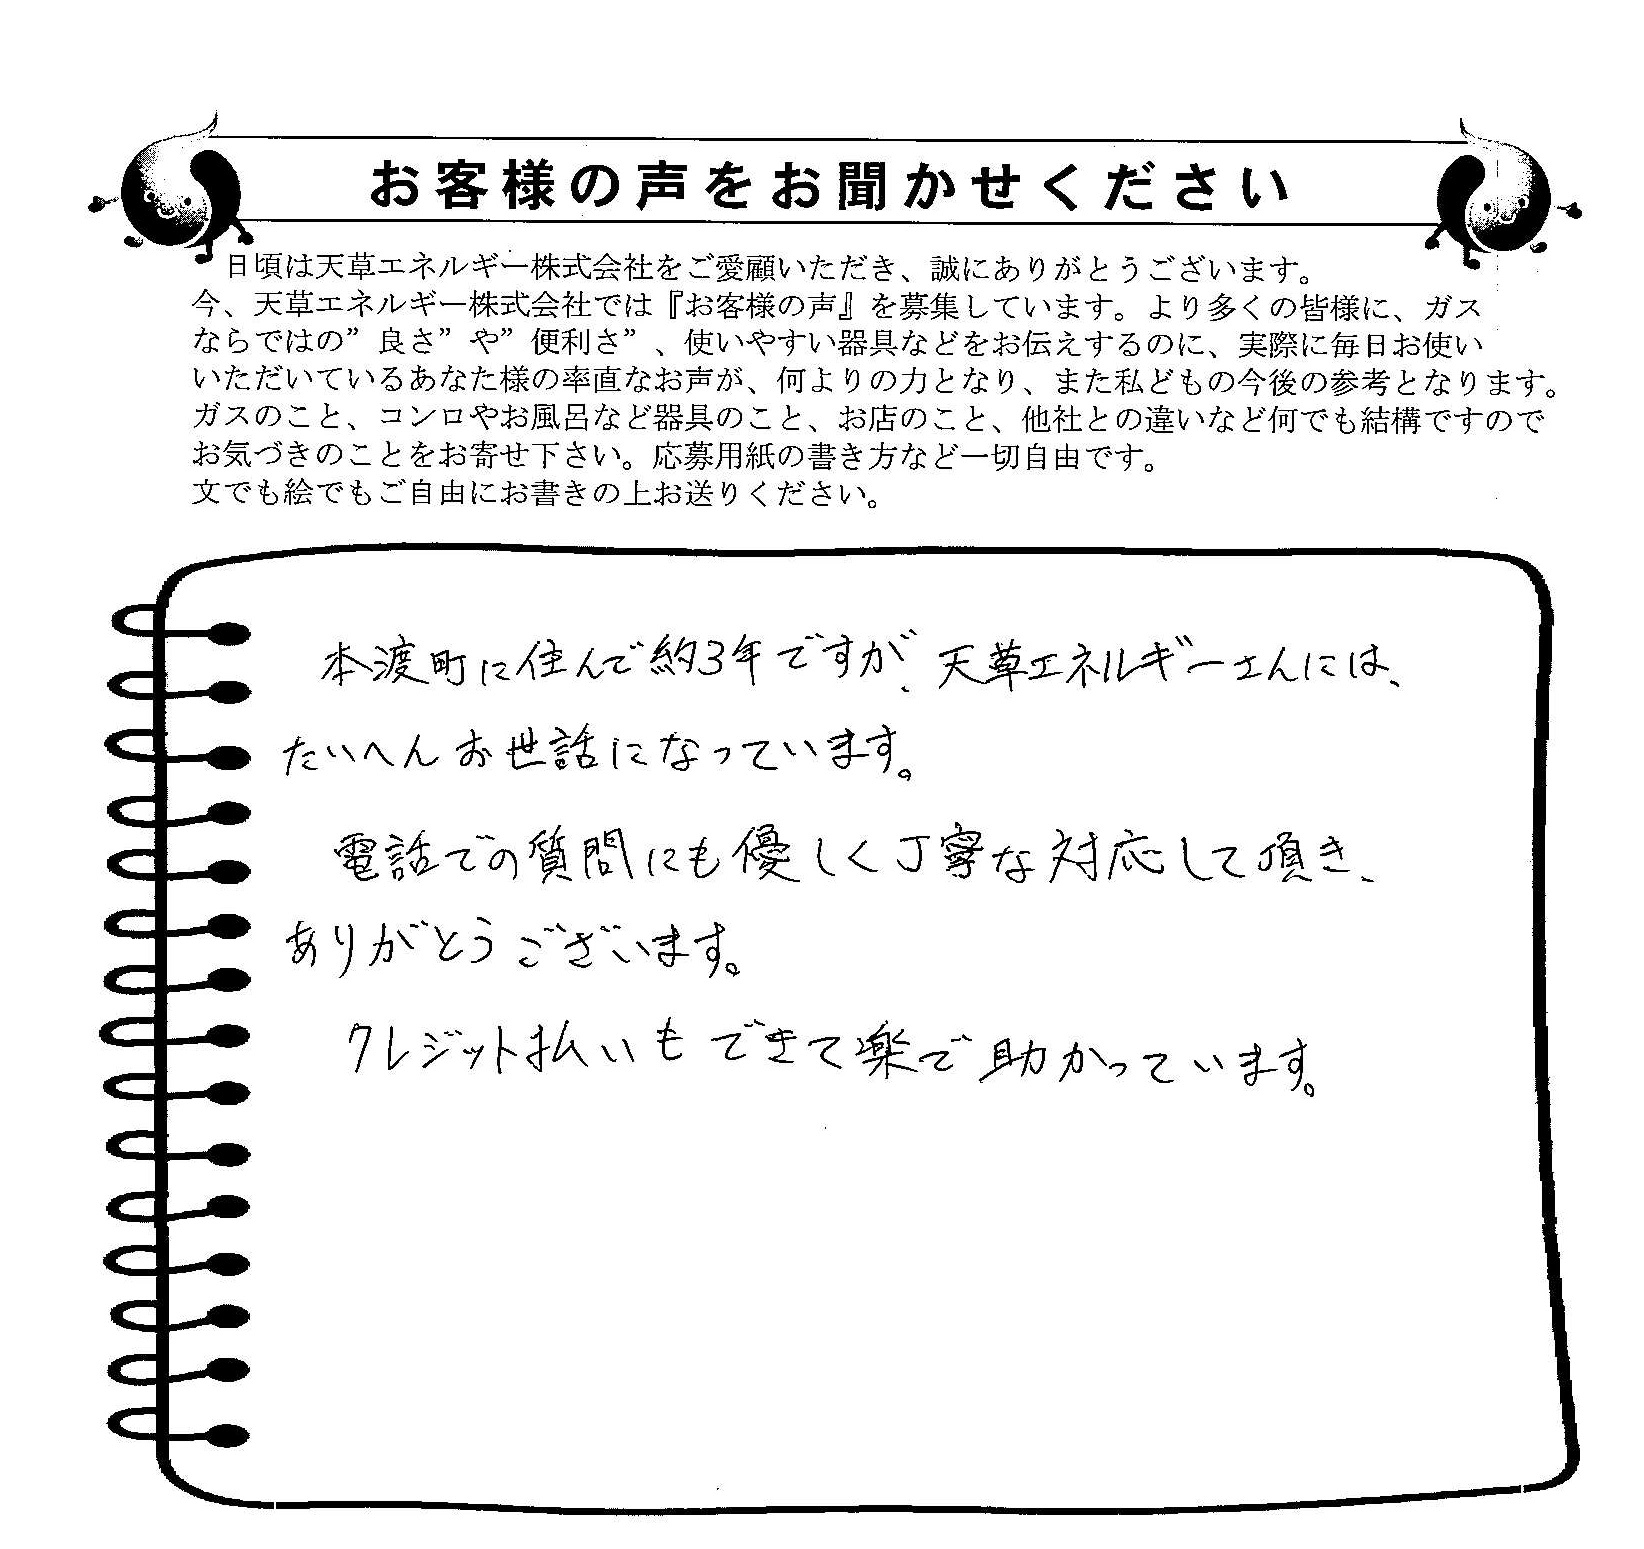 お客様の声をお聞かせください
日頃は天草エネルギー株式会社をご愛顧いただき、誠にありがとうございます。
今、天草エネルギー株式会社では『お客様の声』を募集しています。より多くの皆様に、ガス
ならではの”良さ”や”便利さ”、使いやすい器具などをお伝えするのに、実際に毎日お使い
いただいているあなた様の率直なお声が、何よりの力となり、また私どもの今後の参考となります。
ガスのこと、コンロやお風呂など器具のこと、お店のこと、他社との違いなど何でも結構ですので
お気づきのことをお寄せ下さい。応募用紙の書き方など一切自由です。
文でも絵でもご自由にお書きの上お送りください。
本渡町に住んで約3年ですが、天草エネルギーさんには、
たいへんお世話になっています。
電話での質問にも優しく丁寧な対応して頂き、
ありがとうございます。
クレジット払いもできて楽で助かっています。